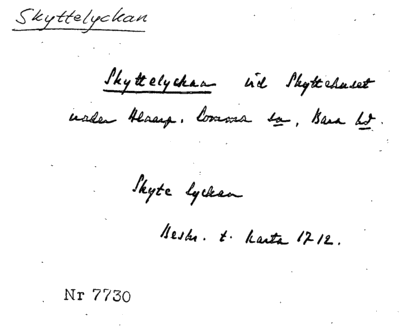 Skyttelyckan
Skyttelyckan vid Skyttehuset
under Alnarp. Lomma sn, Bara hd.
Skyte lyckan
Beskr. t. karta 1712.
Nr 7730